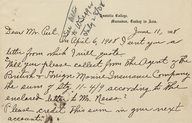 Anatolia College,
Marsovan, Turkey in Asia.
June 11, '08
Dear Mr. Peet
On April 6, 1908 I sent you a
letter from which I will quote
"Will you please collect from the Agent of the
British & Foreign Marine Insurance Company
the sum of £ 11-4/7 according to this
enclosed letter to Mr. Reeser?
Please credit this sum in your next
account."